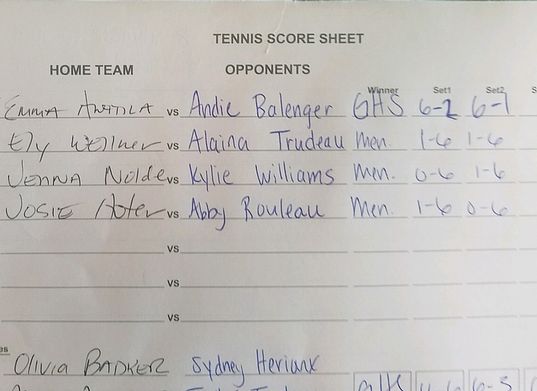 TENNIS SCORE SHEET
HOME TEAM OPPONENTS
Winner Set1 Set2
EMMA vs Andie Balenger GHS 6-2 6-1
Ely vs Alaina Trudeau Men. 1-6 1-6
JENNA Nolde vs Kylie Williams Men. 0-6 1-6
JOSIE vs Abby Rouleau Men. 1-6 0-6
vs
vs
vs
OLIVIA BADKER Sydney
6-3